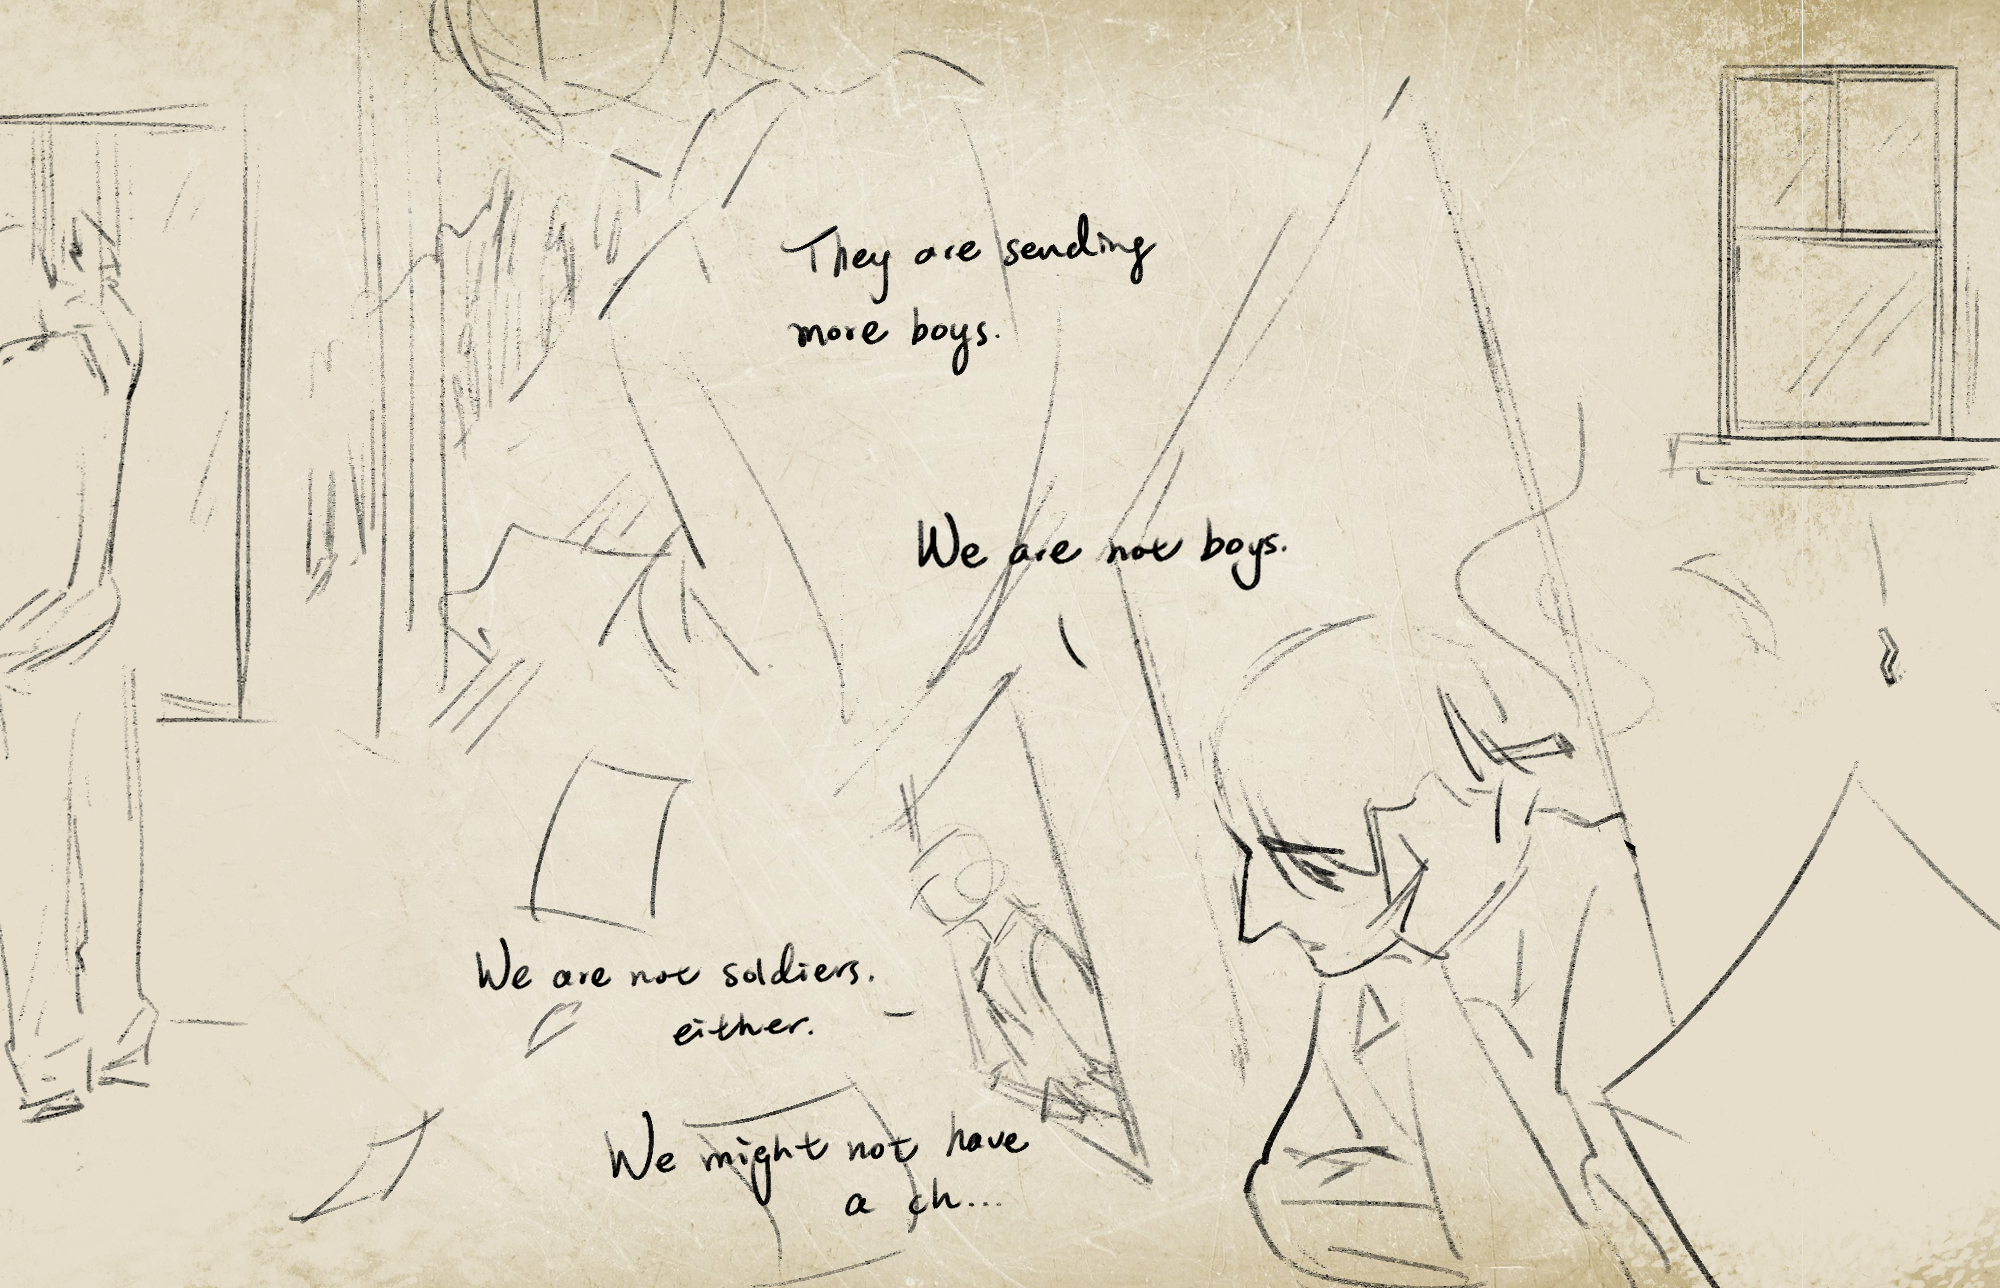 They are sending
more boys.
We are not boys.
We are not soldiers.
either.
We might not have
a ch...